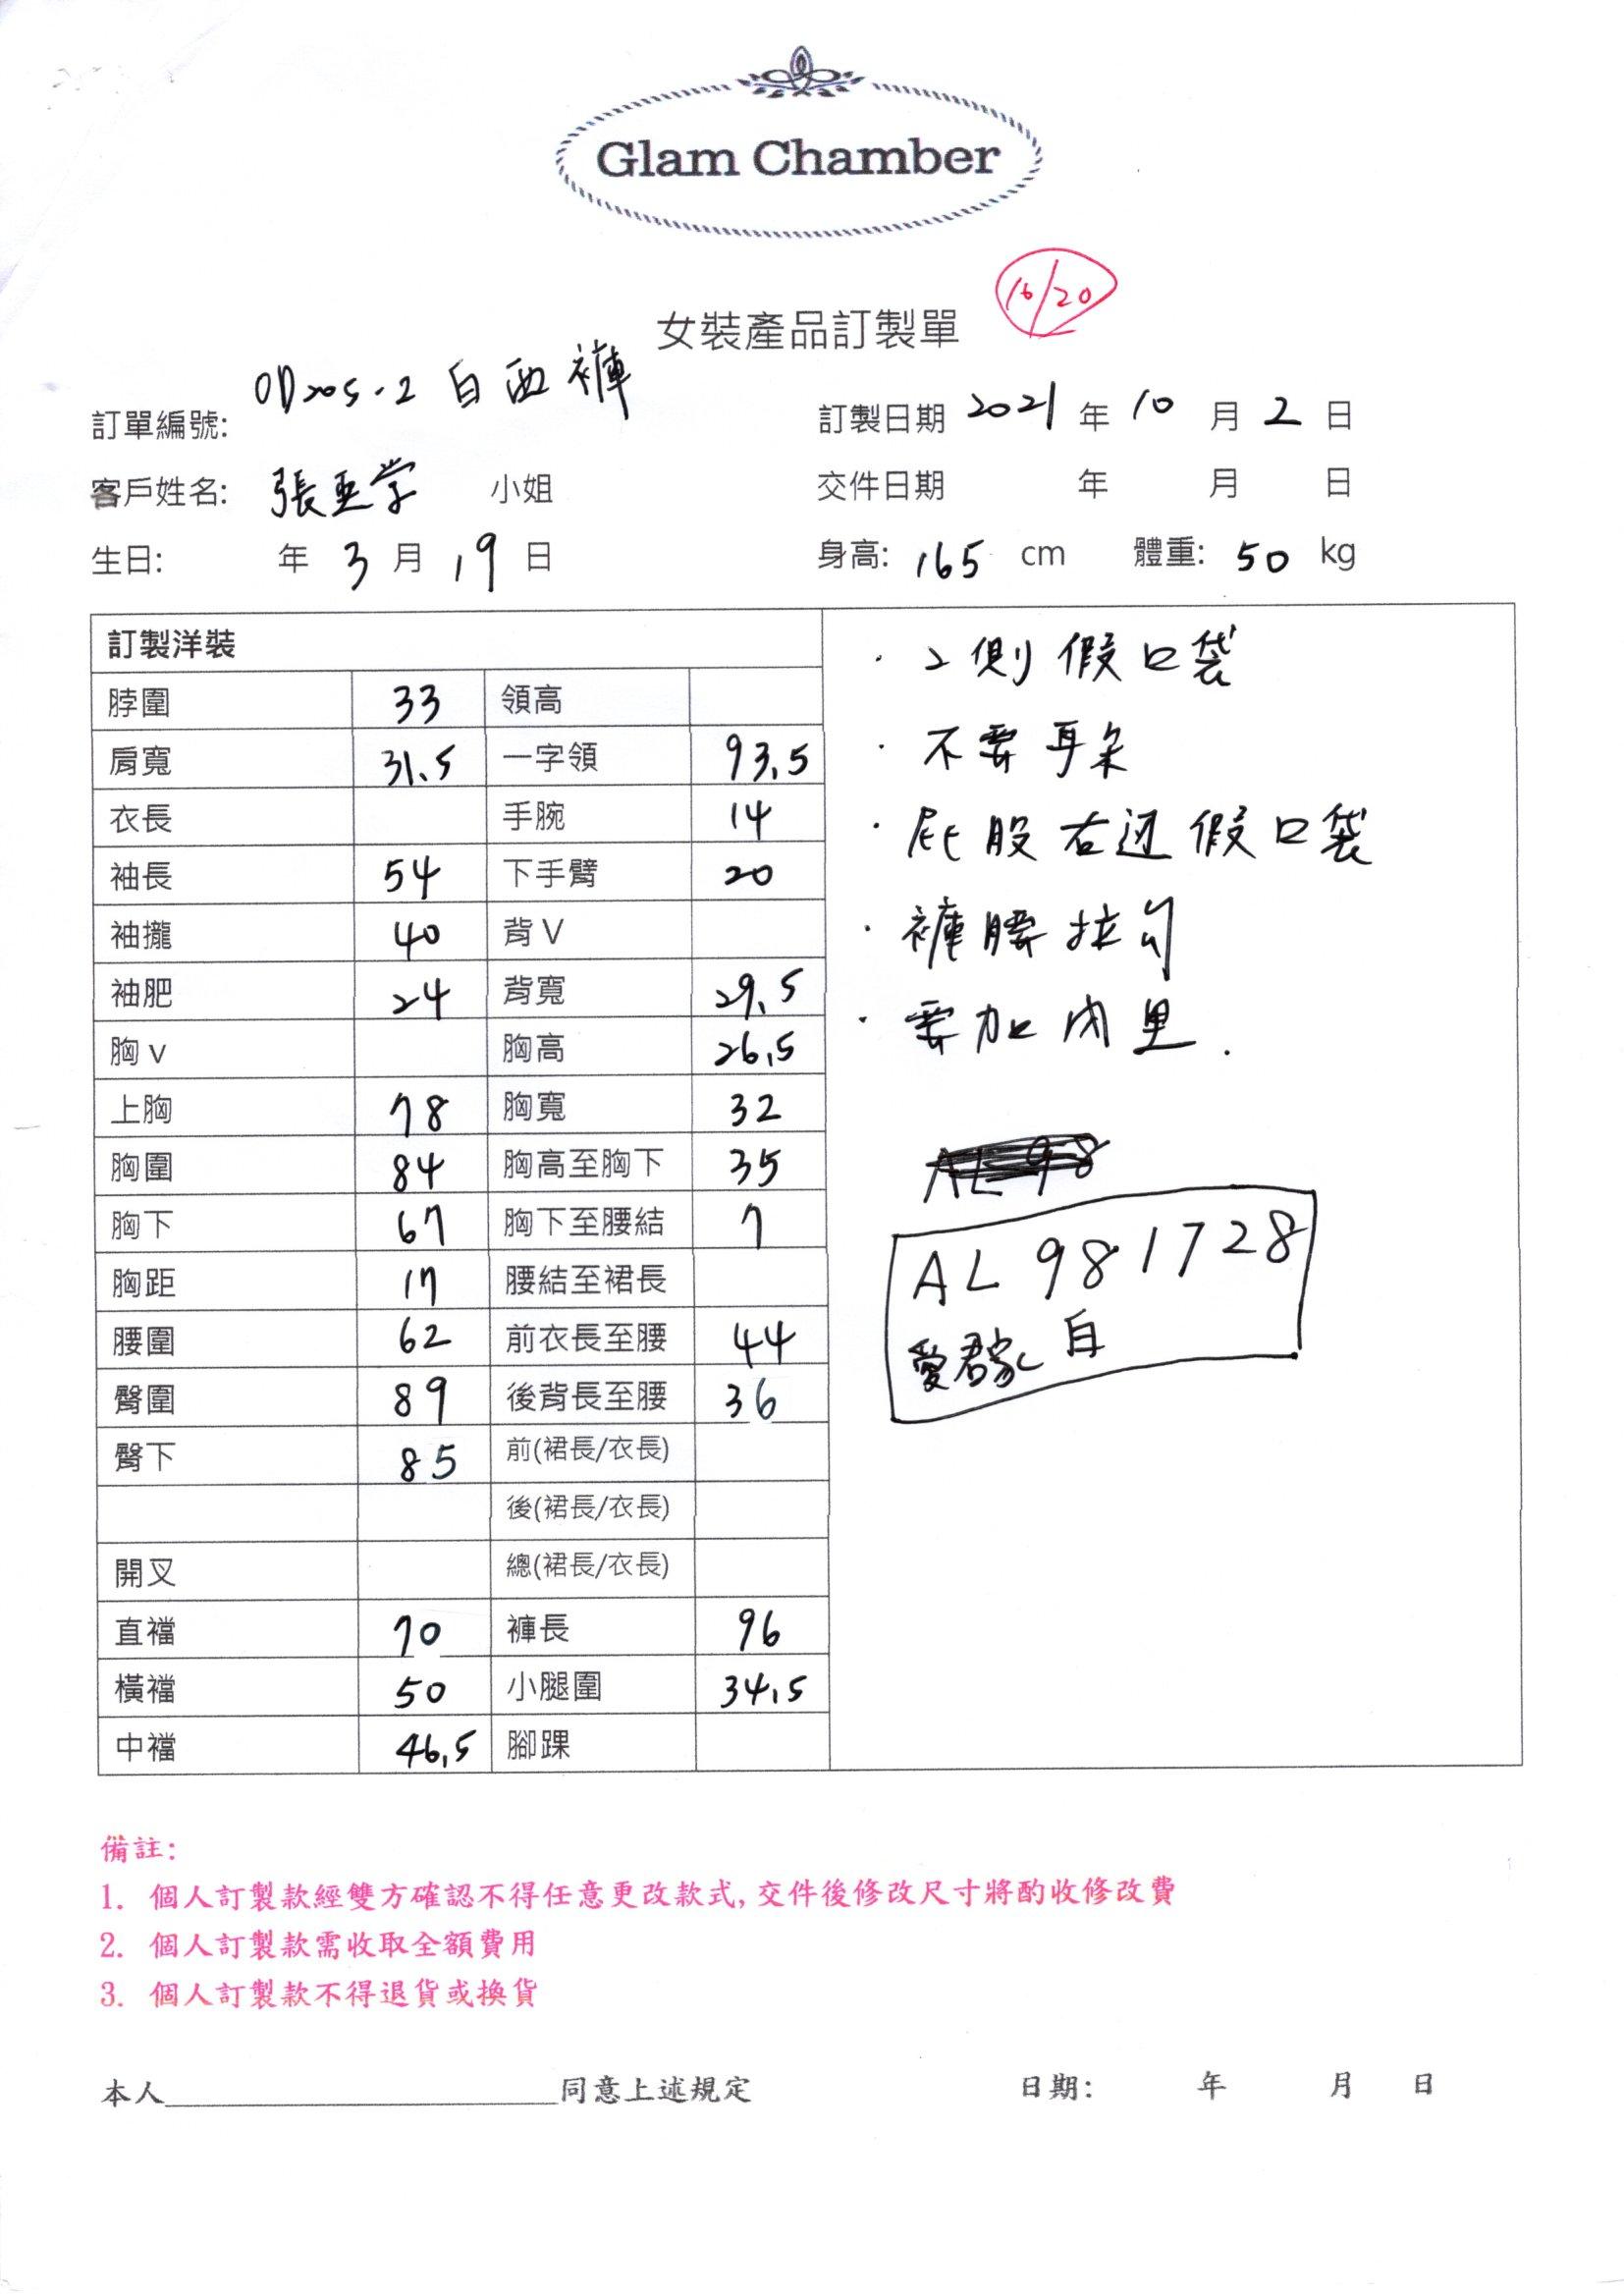 Glam Chamber
16/20
女裝產品訂製單
訂單編號: OD205-2 白西褲
訂製日期 2021 年 10 月 2 日
客戶姓名: 張亜学 小姐
交件日期 年 月 日
生日: 年 3 月 19 日
身高: 165 cm 體重: 50 kg
訂製洋裝
脖圍 33 領高
肩寬 31.5 一字領 93.5
衣長 手腕 14
袖長 54 下手臂 20
袖攏 40 背V
袖肥 24 背寬 29.5
胸v 胸高 26.5
上胸 78 胸寬 32
胸圍 84 胸高至胸下 35
胸下 67 胸下至腰結 7
胸距 17 腰結至裙長
腰圍 62 前衣長至腰 44
臀圍 89 後背長至腰 36
臀下 85 前(裙長/衣長)
後(裙長/衣長)
開叉 總(裙長/衣長)
直襠 70 褲長 96
橫襠 50 小腿圍 34.5
中襠 46.5 腳踝
· 2側假口袋
· 不要耳朵
· 屁股右边假口袋
· 褲腰拉勾
· 要加內里.
AL 98
AL 981728
愛君家 白
備註:
1. 個人訂製款經雙方確認不得任意更改款式,交件後修改尺寸將酌收修改費
2. 個人訂製款需收取全額費用
3. 個人訂製款不得退貨或換貨
本人 同意上述規定
日期: 年 月 日